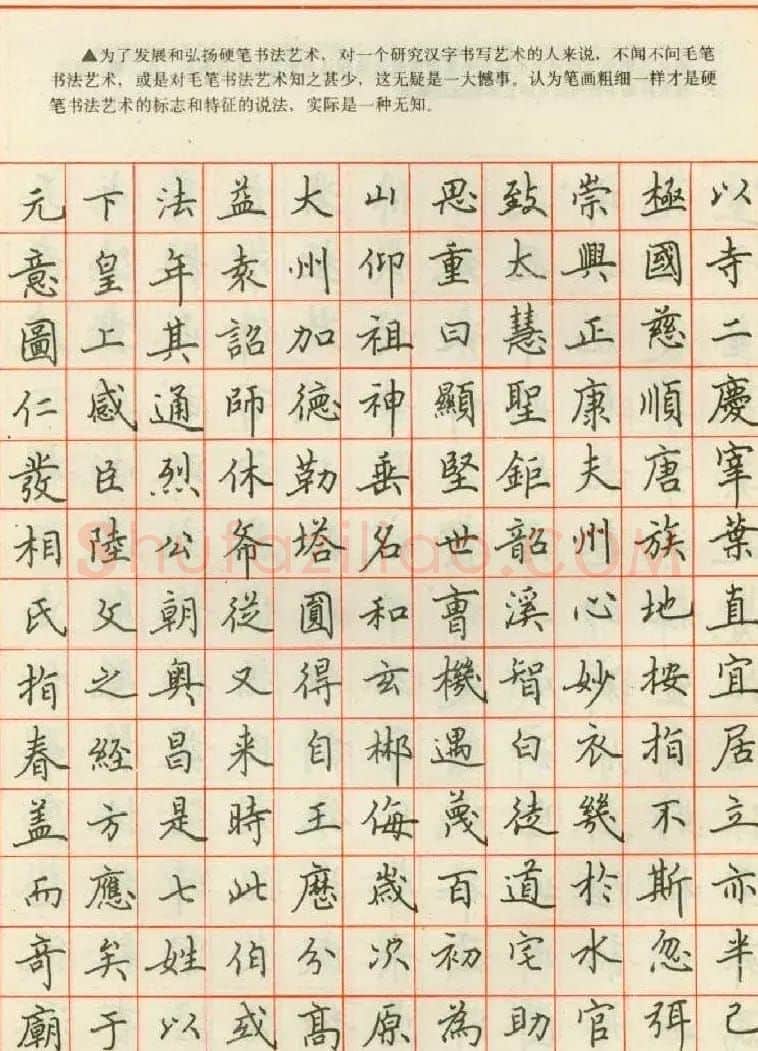 ▲为了发展和弘扬硬笔书法艺术，对一个研究汉字书写艺术的人来说，不闻不问毛笔
书法艺术，或是对毛笔书法艺术知之甚少，这无疑是一大憾事。认为笔画粗细一样才是硬
笔书法艺术的标志和特征的说法，实际是一种无知。
元下法益大山思致崇極以
意皇年袁州仰重太興國寺
圖上其詔加祖曰慧正慈二
仁感通師德神顯聖康順慶
發臣烈休勒垂堅鉅夫唐宰
相陸公斋塔名世韶州族葉
氏父朝從圓和曹溪心地直
指之奥又得玄機智妙按宜
春經昌来自郴遇白衣指居
盖方是時王侮蔑徒幾不立
而應七此歷歲百道於斯亦
奇矣姓伯分次初宅水忽半
廟于以或高原為助官弭己
Shufaziliao.com